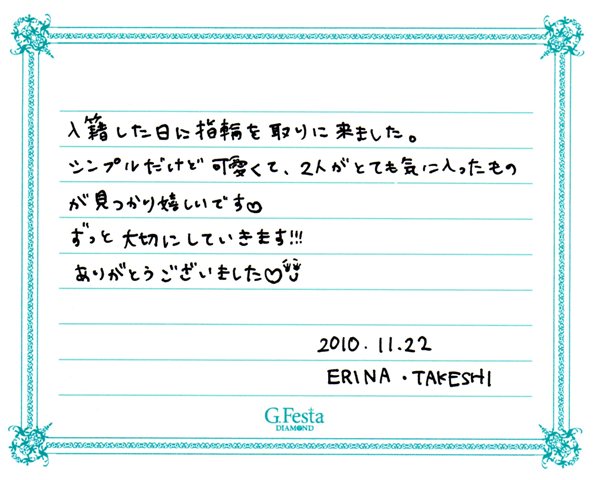 入籍した日に指輪を取りに来ました。
シンプルだけど可愛くて、2人がとても気に入ったもの
が見つかり嬉しいです♡
ずっと大切にしていきます!!!
ありがとうございました♡
2010.11.22
ERINA・TAKESHI
G.Festa
DIAMOND